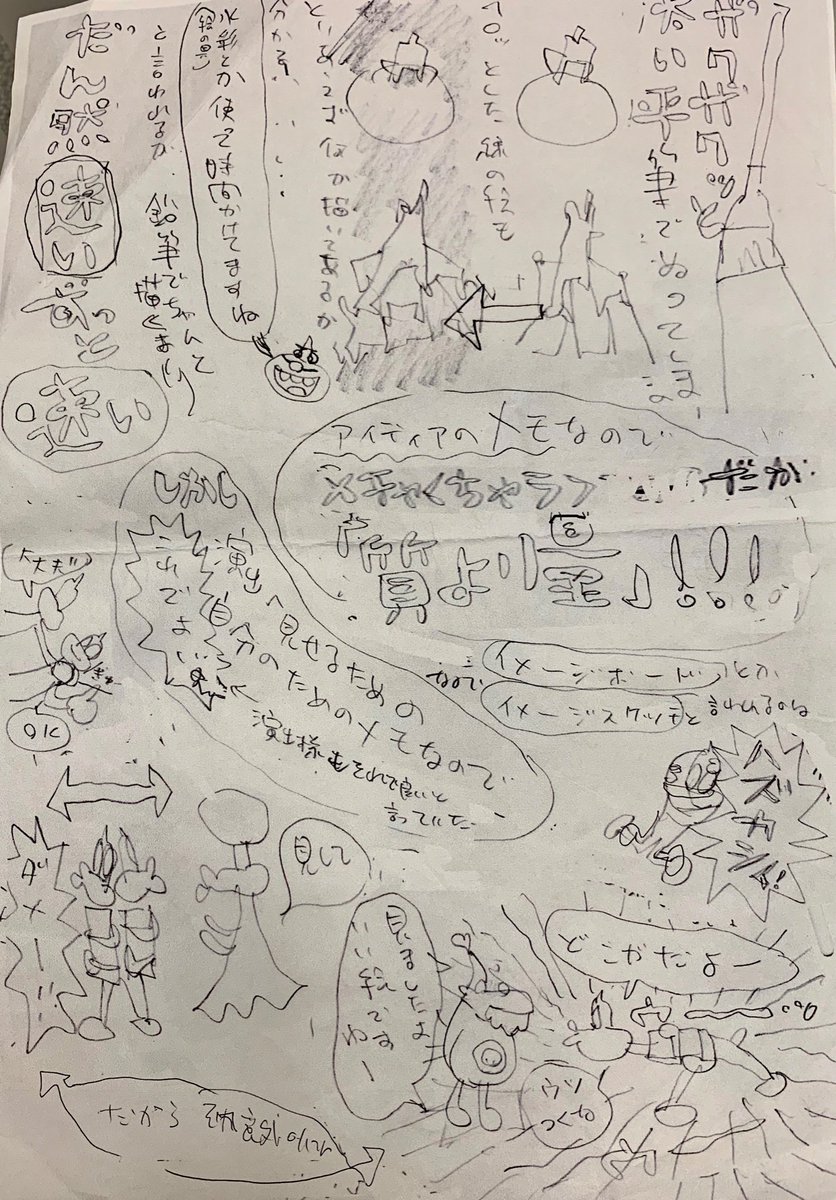 ザクザク
太い平筆でぬってしまう
ペロッとした線の絵も
とりあえず何が描いてあるか
分かる……
水彩とか使って時間かけてますね
(絵の具)
と言われるが、鉛筆でちゃんて
描くより
だん然
速い
ずっと
速い
アイディアのメモなので
メチャくちゃラフ
だが
質より量」!!!
なので
イメージボードとか
イメージスケッチと言われるのは
ハズカシイ!
しかし
演出へ見せるための
自分のためのメモなので
これでよい
演出様もそれで良いと
言っていた
大丈夫
OK
ダメー!!
見して
見ましたよ
いい絵ですねー
どこがだよー
ウソつくな
だから